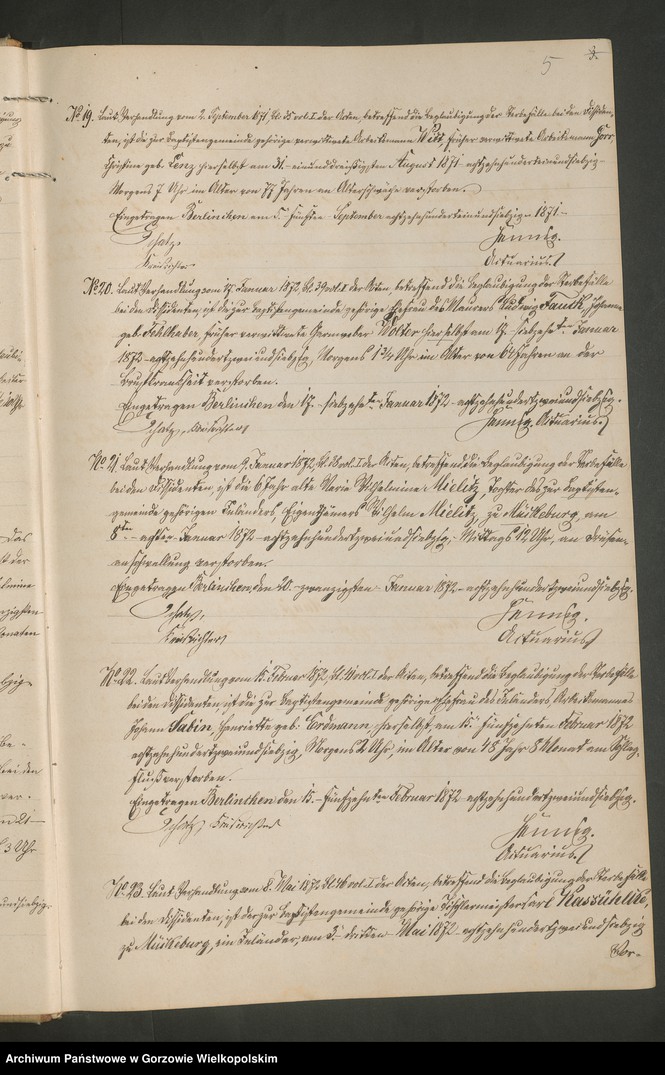 5 3.
No 19. Laut Verhandlung vom 2. September 1871, bl. 35 vol. I der Akten, betreffend die Beglaubigung der Sterbefälle bei den Dissiden-
ten, ist die zur Baptistengemeinde gehörige verwittwete Arbeitsmann Witt, früher verwittwete Arbeitsmann
Christine geb. Lenz hierselbst am 31. einunddreißigsten August 1871 achtzehnhunderteinundsiebzig
Morgens 7 Uhr im Alter von 77 Jahren an Altersschwäche verstorben.
Eingetragen Berlinchen am 5. fünften September achtzehnhunderteinundsiebzig 1871
Schatz, Hennig.
Kreisrichter Actuarius.
No 20. Laut Verhandlung vom 17. Januar 1872, bl. 39 vol. I der Akten, betreffend die Beglaubigung der Sterbefälle
bei den Dissidenten, ist die zur Baptistengemeinde gehörige Ehefrau des Maurers Ludwig Fauth, Johanne
geb. Fehlhaber, früher verwittwete Wolter hierselbst am 17. siebzehnten Januar
1872 achtzehnhundertzweiundsiebzig, Morgens 1 3/4 Uhr im Alter von 61 Jahren an der
Brustkrankheit verstorben.
Eingetragen Berlinchen den 17. siebzehnten Januar 1872 achtzehnhundertzweiundsiebzig.
Schatz, Kreisrichter Hennig, Actuarius.
No 21. Laut Verhandlung vom 9. Januar 1872, bl. 38 vol. I der Akten, betreffend die Beglaubigung der Sterbefälle
bei den Dissidenten, ist die 6 Jahr alte Maria Wilhelmine Mielitz, Tochter des zur Baptisten-
gemeinde gehörigen Inländers, Eigenthümers Wilhelm Mielitz, zu Mückeburg, am
8ten achten Januar 1872 achtzehnhundertzweiundsiebzig, Mittags 12 Uhr, an Drüsen-
anschwellung verstorben.
Eingetragen Berlinchen, den 20. zwanzigsten Januar 1872 achtzehnhundertzweiundsiebzig.
Schatz, Hennig.
Kreisrichter Actuarius
No 22. Laut Verhandlung vom 15. Februar 1872, bl. 41 vol. I der Akten, betreffend die Beglaubigung der Sterbefälle
bei den Dissidenten, ist die zur Baptistengemeinde gehörige Ehefrau des Inländers Arbeitsmannes
Johann Sabin, Henriette geb. Erdmann, hierselbst, am 15. fünfzehnten Februar 1872
achtzehnhundertzweiundsiebzig, Morgens 2 Uhr, im Alter von 48 Jahr 8 Monat am Schlag-
fluß verstorben.
Eingetragen Berlinchen den 15. fünfzehnten Februar 1872 achtzehnhundertzweiundsiebzig.
Schatz, Kreisrichter Hennig.
Actuarius.
No 23. Laut Verhandlung vom 8. Mai 1872 bl. 46 vol. I der Akten, betreffend die Beglaubigung der Sterbefälle
bei den Dissidenten, ist der zur Baptistengemeinde gehörige Tischlermeister Carl
zu Mückeburg, ein Inländer, am 3. dritten Mai 1872 achtzehnhundertzweiundsiebzig
Vor-
Archiwum Państwowe w Gorzowie Wielkopolskim